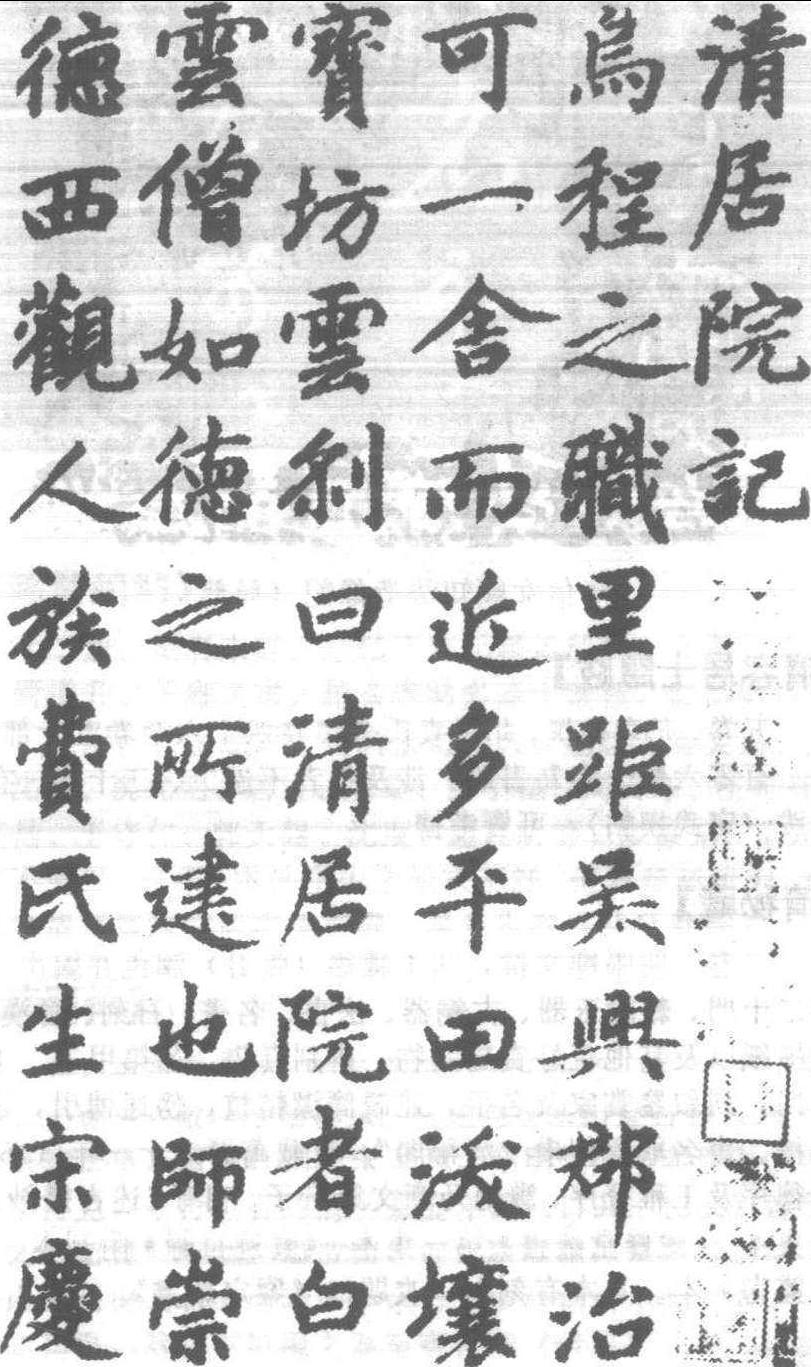 清居院記
烏程之職里距吳興郡治
可一舍而近多平田沃壤
寶坊雲刹曰清居院者白
雲僧如德之所建也師崇
德西觀人族費氏生宋慶